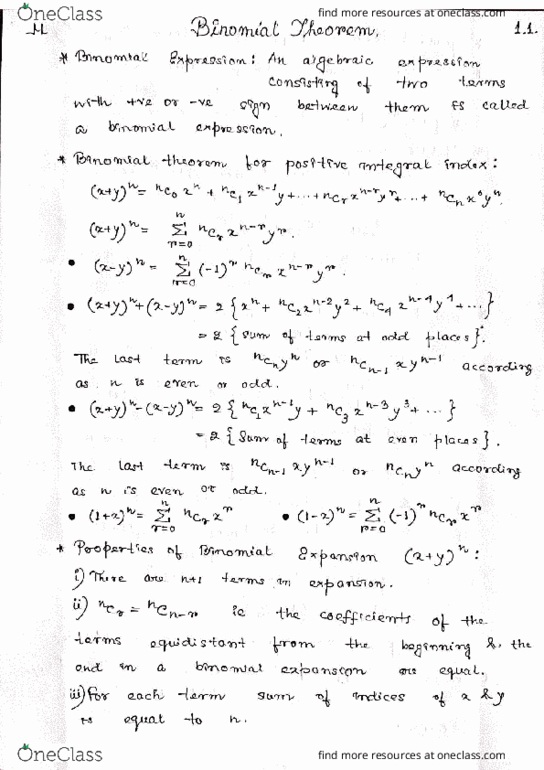 OneClass
find more resources at oneclass.com
Binomial Theorem.
1.1.
* Binomial Expression: An algebraic expression
consisting of two terms
with +ve or -ve sign between them is called
a binomial expression.
* Binomial theorem for positive integral index:
(x+y)ⁿ = ⁿC₀ xⁿ + ⁿC₁ xⁿ⁻¹y + ... + ⁿCᵣ xⁿ⁻ʳ yʳ + ... + ⁿCₙ x⁰yⁿ.
(x+y)ⁿ = ∑_{r=0}^{n} ⁿCᵣ xⁿ⁻ʳ yʳ.
• (x-y)ⁿ = ∑_{r=0}^{n} (-1)ʳ ⁿCᵣ xⁿ⁻ʳ yʳ.
• (x+y)ⁿ+(x-y)ⁿ = 2 { xⁿ + ⁿC₂ xⁿ⁻² y² + ⁿC₄ xⁿ⁻⁴ y⁴ + ... }
= 2 { sum of terms at odd places }.
The last term is ⁿCₙyⁿ or ⁿCₙ₋₁ xyⁿ⁻¹ according
as n is even or odd.
• (x+y)ⁿ-(x-y)ⁿ = 2 { ⁿC₁xⁿ⁻¹y + ⁿC₃ xⁿ⁻³y³ + ... }
= 2 { Sum of terms at even places }.
The last term is ⁿCₙ₋₁ xyⁿ⁻¹ or ⁿCₙyⁿ according
as n is even or odd.
• (1+x)ⁿ = ∑_{r=0}^{n} ⁿCᵣ xʳ • (1-x)ⁿ = ∑_{r=0}^{n} (-1)ʳ ⁿCᵣ xʳ
* Properties of Binomial Expansion (x+y)ⁿ:
i) There are n+1 terms in expansion.
ii) ⁿCᵣ = ⁿCₙ₋ᵣ ie the coefficients of the
terms equidistant from the beginning &, the
end in a binomial expansion are equal.
iii) For each term sum of indices of x & y
is equal to n.
OneClass
find more resources at oneclass.com